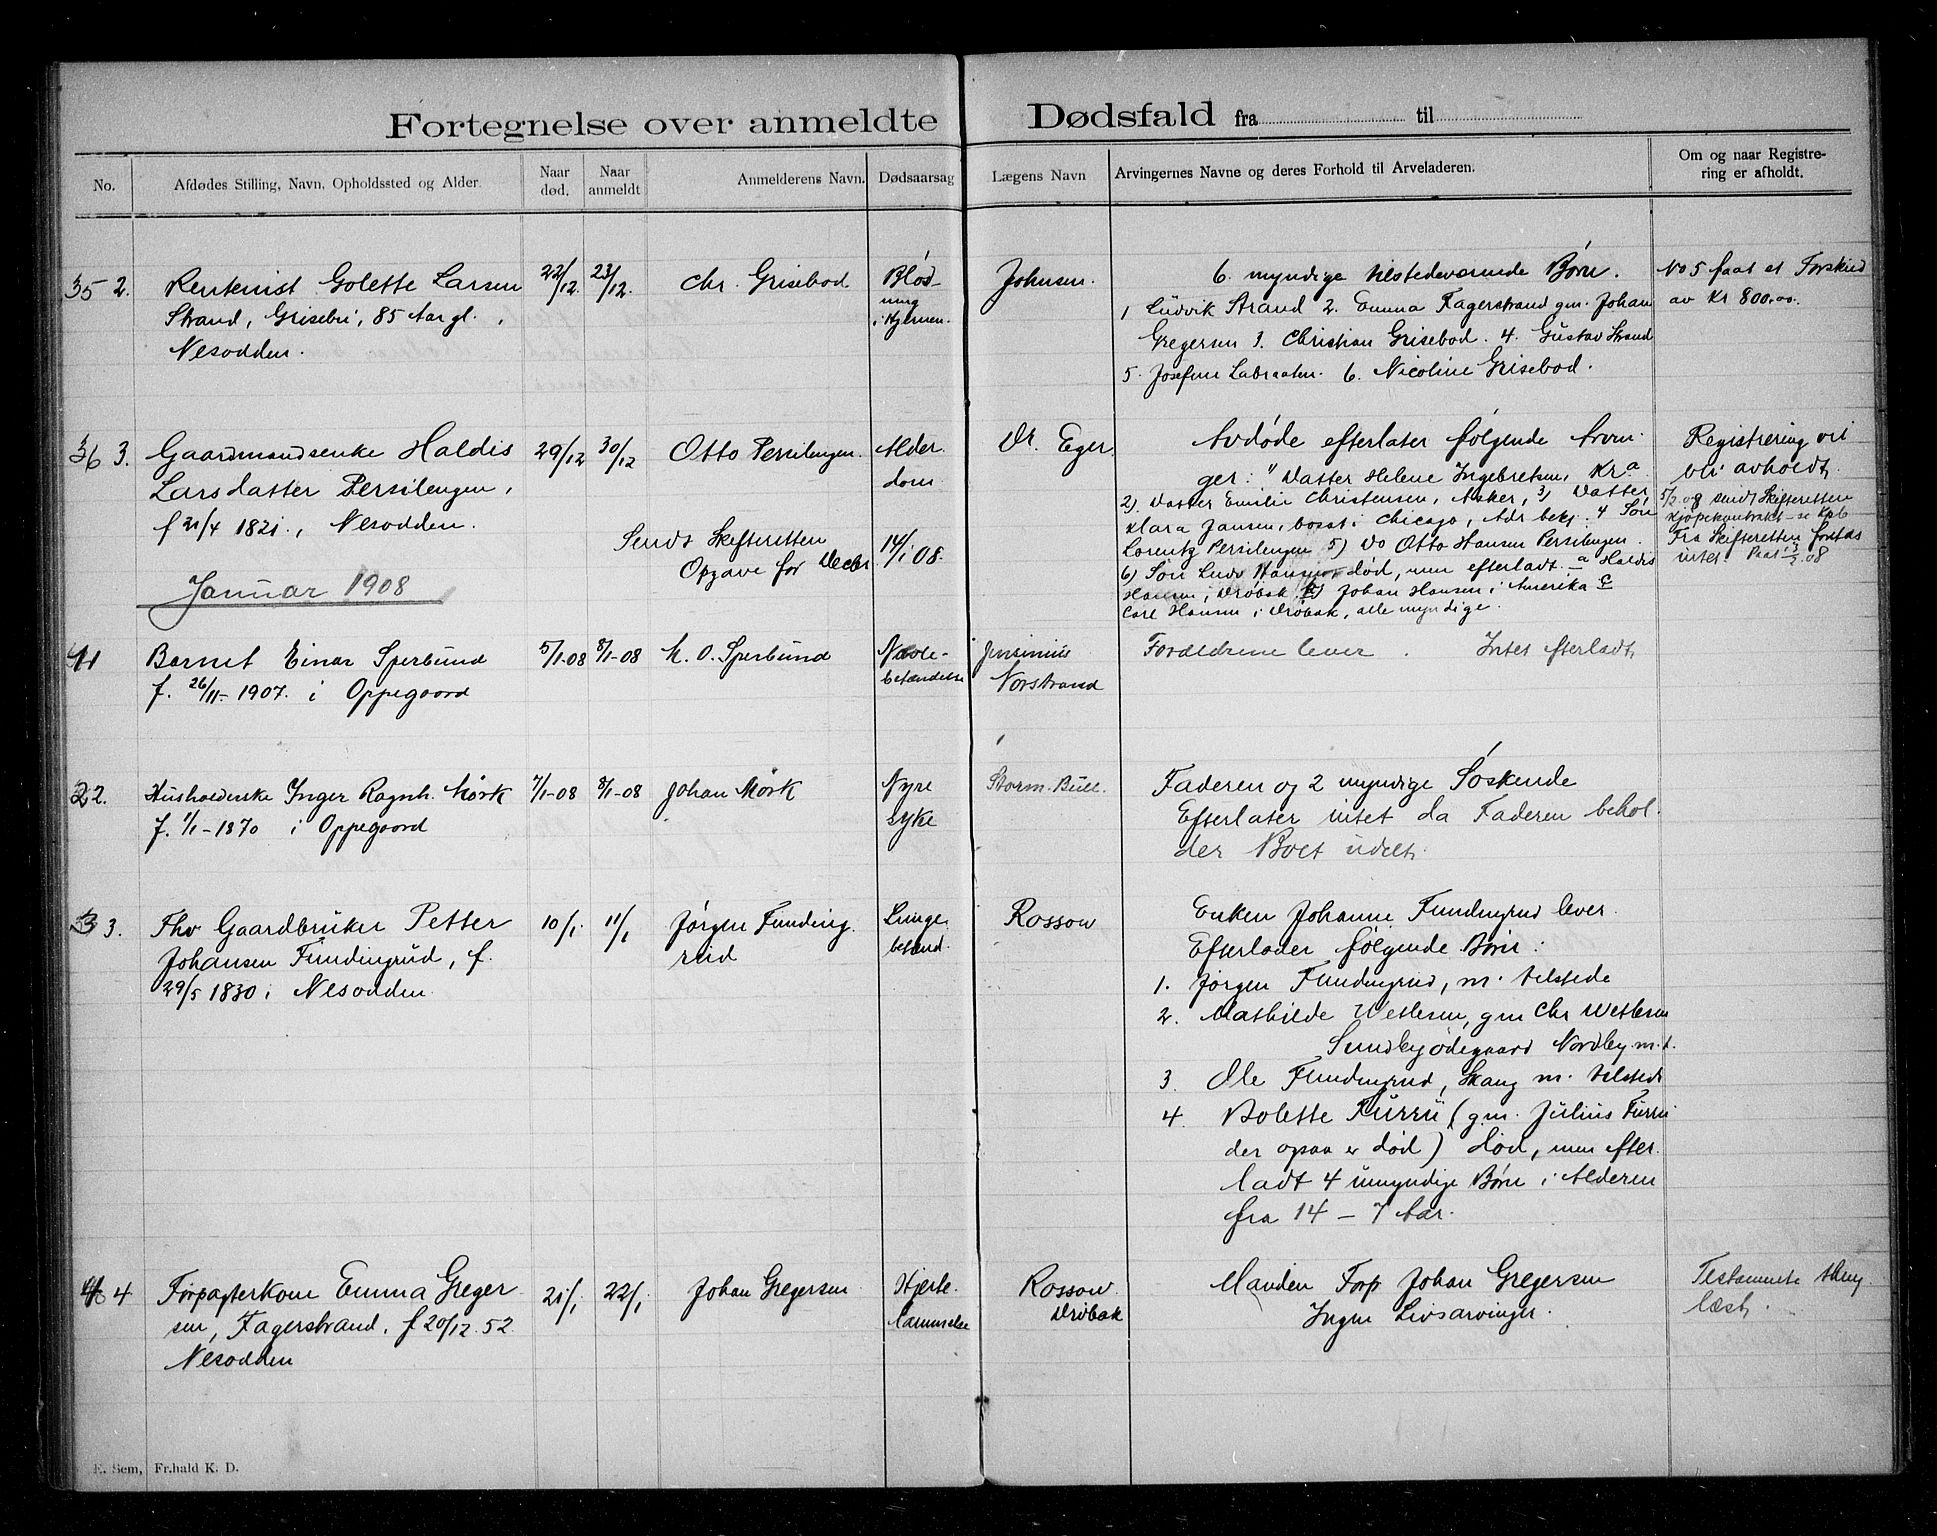 Fortegnelse over anmeldte Dødsfald fra til
No.
Afdødes Stilling, Navn, Opholdssted og Alder.
Naar død.
Naar anmeldt
Anmelderens Navn.
Dødsaarsag
Lægens Navn
Arvingernes Navne og deres Forhold til Arveladeren.
Om og naar Registrering er afholdt.
35 2. Rentenist Golette Larsen
Strand, Grisebu, 85 Aar gl.
Nesodden.
22/12. 23/12. Chr. Grisebod
Blød-
ning
i Hjernen.
Johnsen.
6. myndige tilstedeværende Børn.
1 Ludvik Strand 2. Emma Fagerstrand gm. Johan
Gregersen 3. Christian Grisebod. 4. Gustav Strand
5. Josefine Labraaten. 6. Nicoline Grisebod.
No 5 faat et Forskud
av Kr 800.00.
36 3. Gaardmandsenke Haldis
Larsdatter Persilengen,
f 21/4 1821., Nesodden.
29/12 30/12 Otto Persilengen.
Alder
dom
Dr. Eger
Sendt Skifteretten
Opgave for Decbr. 14/1 08.
Avdøde efterlater følgende Arvin
ger: 1) Datter Helene Ingebretsen, Kra
2). Datter Emilie Christensen, Asker, 3) Datter
Klara Jansen, bosat i Chicago, Adr bekj. 4 Søn
Lorentz Persilengen 5) Do Otto Hansen Persilengen.
6) Søn Ludv Hansen død, men efterladt a Haldis
Hansen i Drøbak b) Johan Hansen i Amerika c
Carl Hansen i Drøbak, alle myndige.
Registrering vil
bli avholdt.
5/2 08 sendt Skifteretten
Kjøpekontrakt - se Kpb
Fra Skifteretten
intet.
Januar 1908
1 1 Barnet Einar Sperbund
f. 26/11-1907. i Oppegaard
5/1-08 8/1-08 M. O. Sperbund
Navle-
betændelse
Jensenius
Norstrand
Forældrene lever. Intet efterladt,
2 2. Husholderske Inger Ragnh. Mørk
f. 1/1-1870 i Oppegaard
7/1-08 8/1-08 Johan Mørk
Nyre
syke
Storm. Bull.
Faderen og 2 myndige Søskende
Efterlater intet da Faderen behol.
der Boet udelt.
3 3. Fhv Gaardbruker Petter
Johansen Fundingrud, f.
29/5 1830 i Nesodden.
10/1. 11/1 Jørgen Funding.
rud
Lunge
betænd.
Rossow
Enken Johanne Fundingrud lever.
Efterlader følgende Børn:
1. Jørgen Fundingrud, m. tilstede
2. Mathilde Wetlesen, gm Chr Wetlesen
Sundbyødegaard Nordby m. t.
3. Ole Fundingrud, Skaug m. tilstede
4. Bolette Furru (gm. Julius Furru
der ogsaa er død) død, men efter
ladt 4 umyndige Børn i Alderen
fra 14 - 7 Aar.
4 4 Forpagterkone Emma Greger
sen, Fagerstrand, f 20/12. 52.
Nesodden
21/1 22/1 Johan Gregersen
Hjerte.
lammelse
Rossow
Drøbak
Manden Forp Johan Gregersen
Ingen Livsarvinger.
Testamente
læst.
E. Sem, Fr.hald K. D.